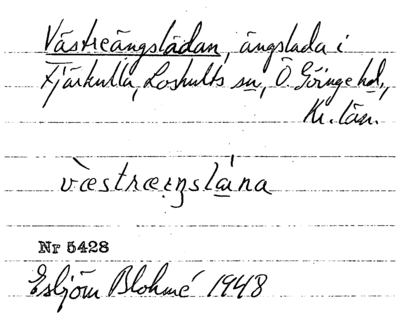 Västreängslådan, ängslada i
Fjärkulla, Loshults sn, Ö. Göinge hd,
Kr. län.
væstræŋslána
Nr 5428
Esbjörn Blohmé 1948